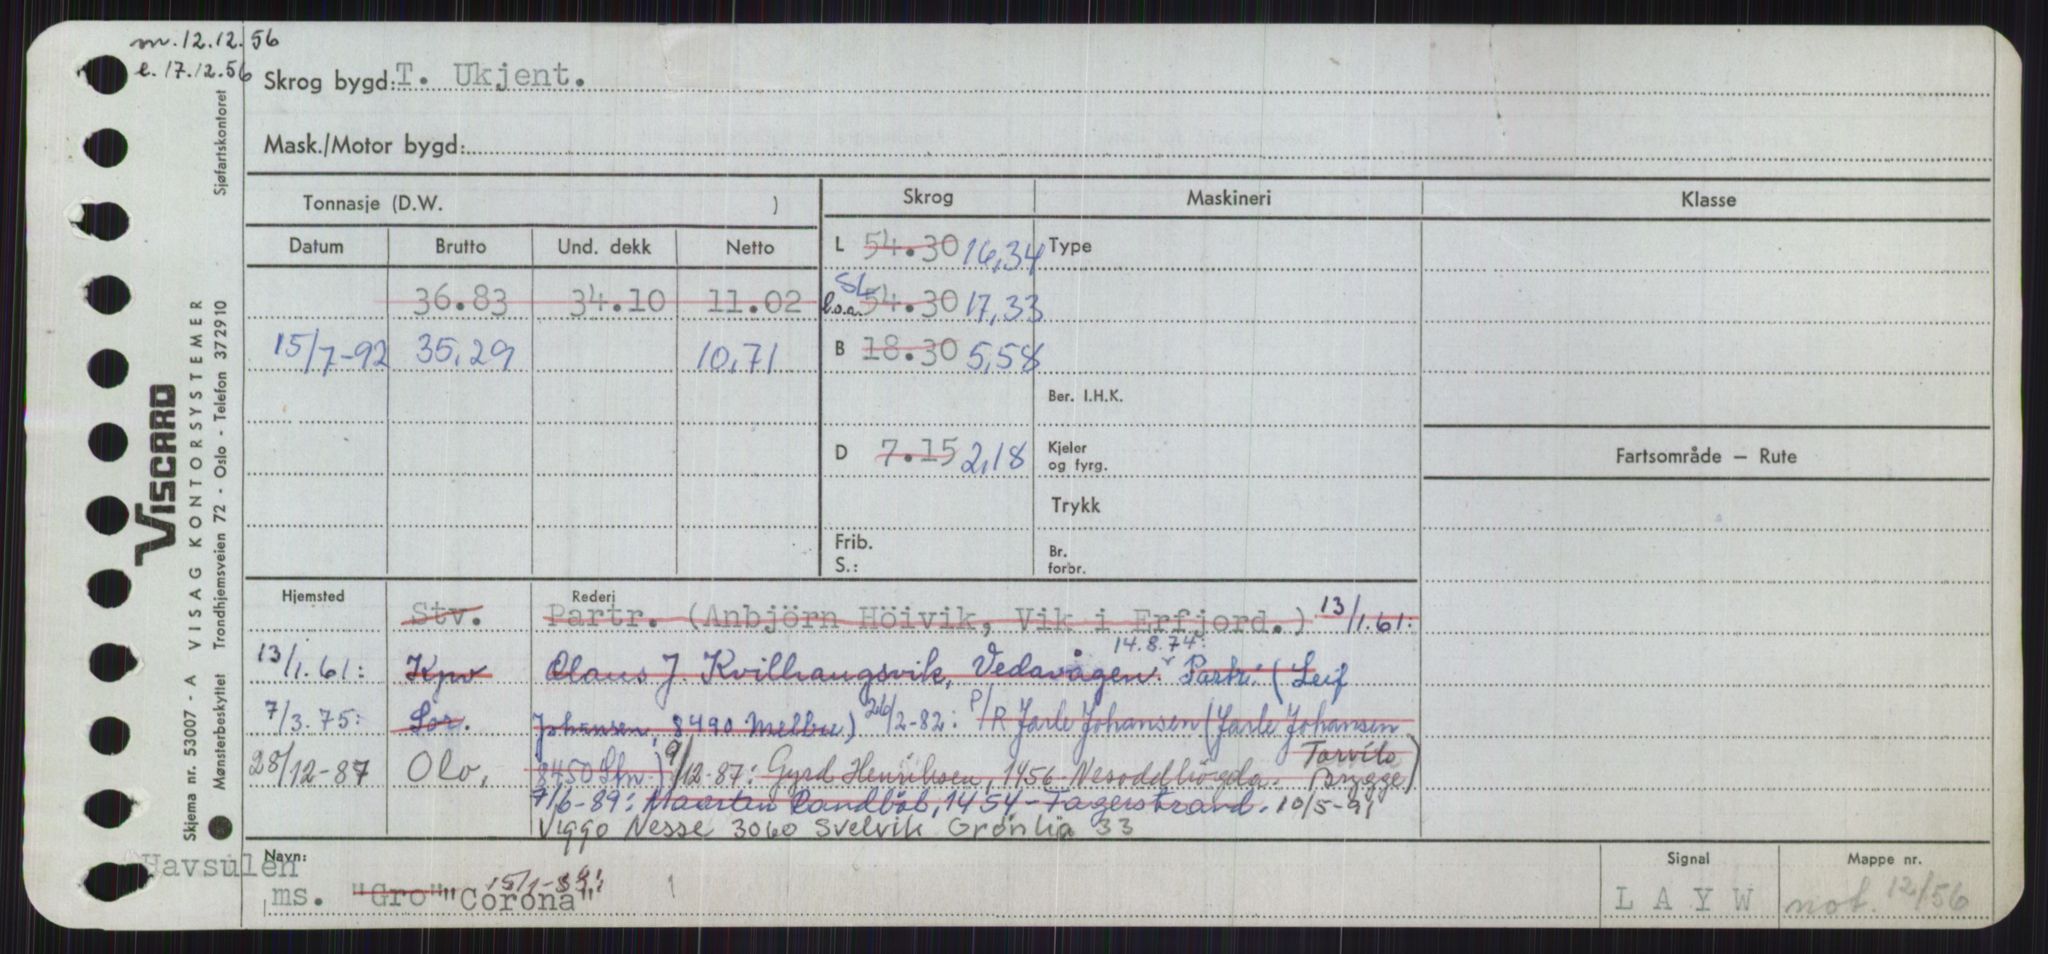 m. 12.12.56
e. 17.12.56
Skrog bygd: T. Ukjent.
Mask./Motor bygd:
Tonnasje (D.W. )
Skrog Maskineri Klasse
Datum Brutto Und. dekk Netto
L 54.30 16,34 Type
36.83 34.10 11.02
SL
l.o.a. 54.30 17,33
15/7-92 35,29 10,71
B 18.30 5,58
Ber. I.H.K.
D 7.15 2,18
Kjeler og fyrg.
Fartsområde — Rute
Trykk
Frib.
S.:
Br. forbr.
Hjemsted Rederi
Stv. Partr. (Anbjörn Höivik, Vik i Erfjord.) 13/1.61:
14.8.74:
13/1.61: Kpv Olaus J. Kvilhaugsvik, Vedavågen. Partr. (Leif
7/3.75: Sor. Johansen, 8490 Melbu) 26/2-82: P/R Jarle Johansen (Jarle Johansen
28/12-87 Olo, 8450 Stn.) 9/12-87: Gyrd Henriksen, 1456-Nesoddhögda. Torvits Brygge)
7/6-89: Maarten Randböl, 1454-Fagerstrand. 10/5-91
Viggo Nesse 3060 Svelvik Grønlia 33
Navn: Signal Mappe nr.
Havsulen
ms. "Gro" "Corona" L A Y W not. 12/56
Skjema nr. 53007 - A VISAG KONTORSYSTEMER
Mønsterbeskyttet Trondhjemsveien 72 - Oslo - Telefon 372910 Sjøfartskontoret
VISCARD